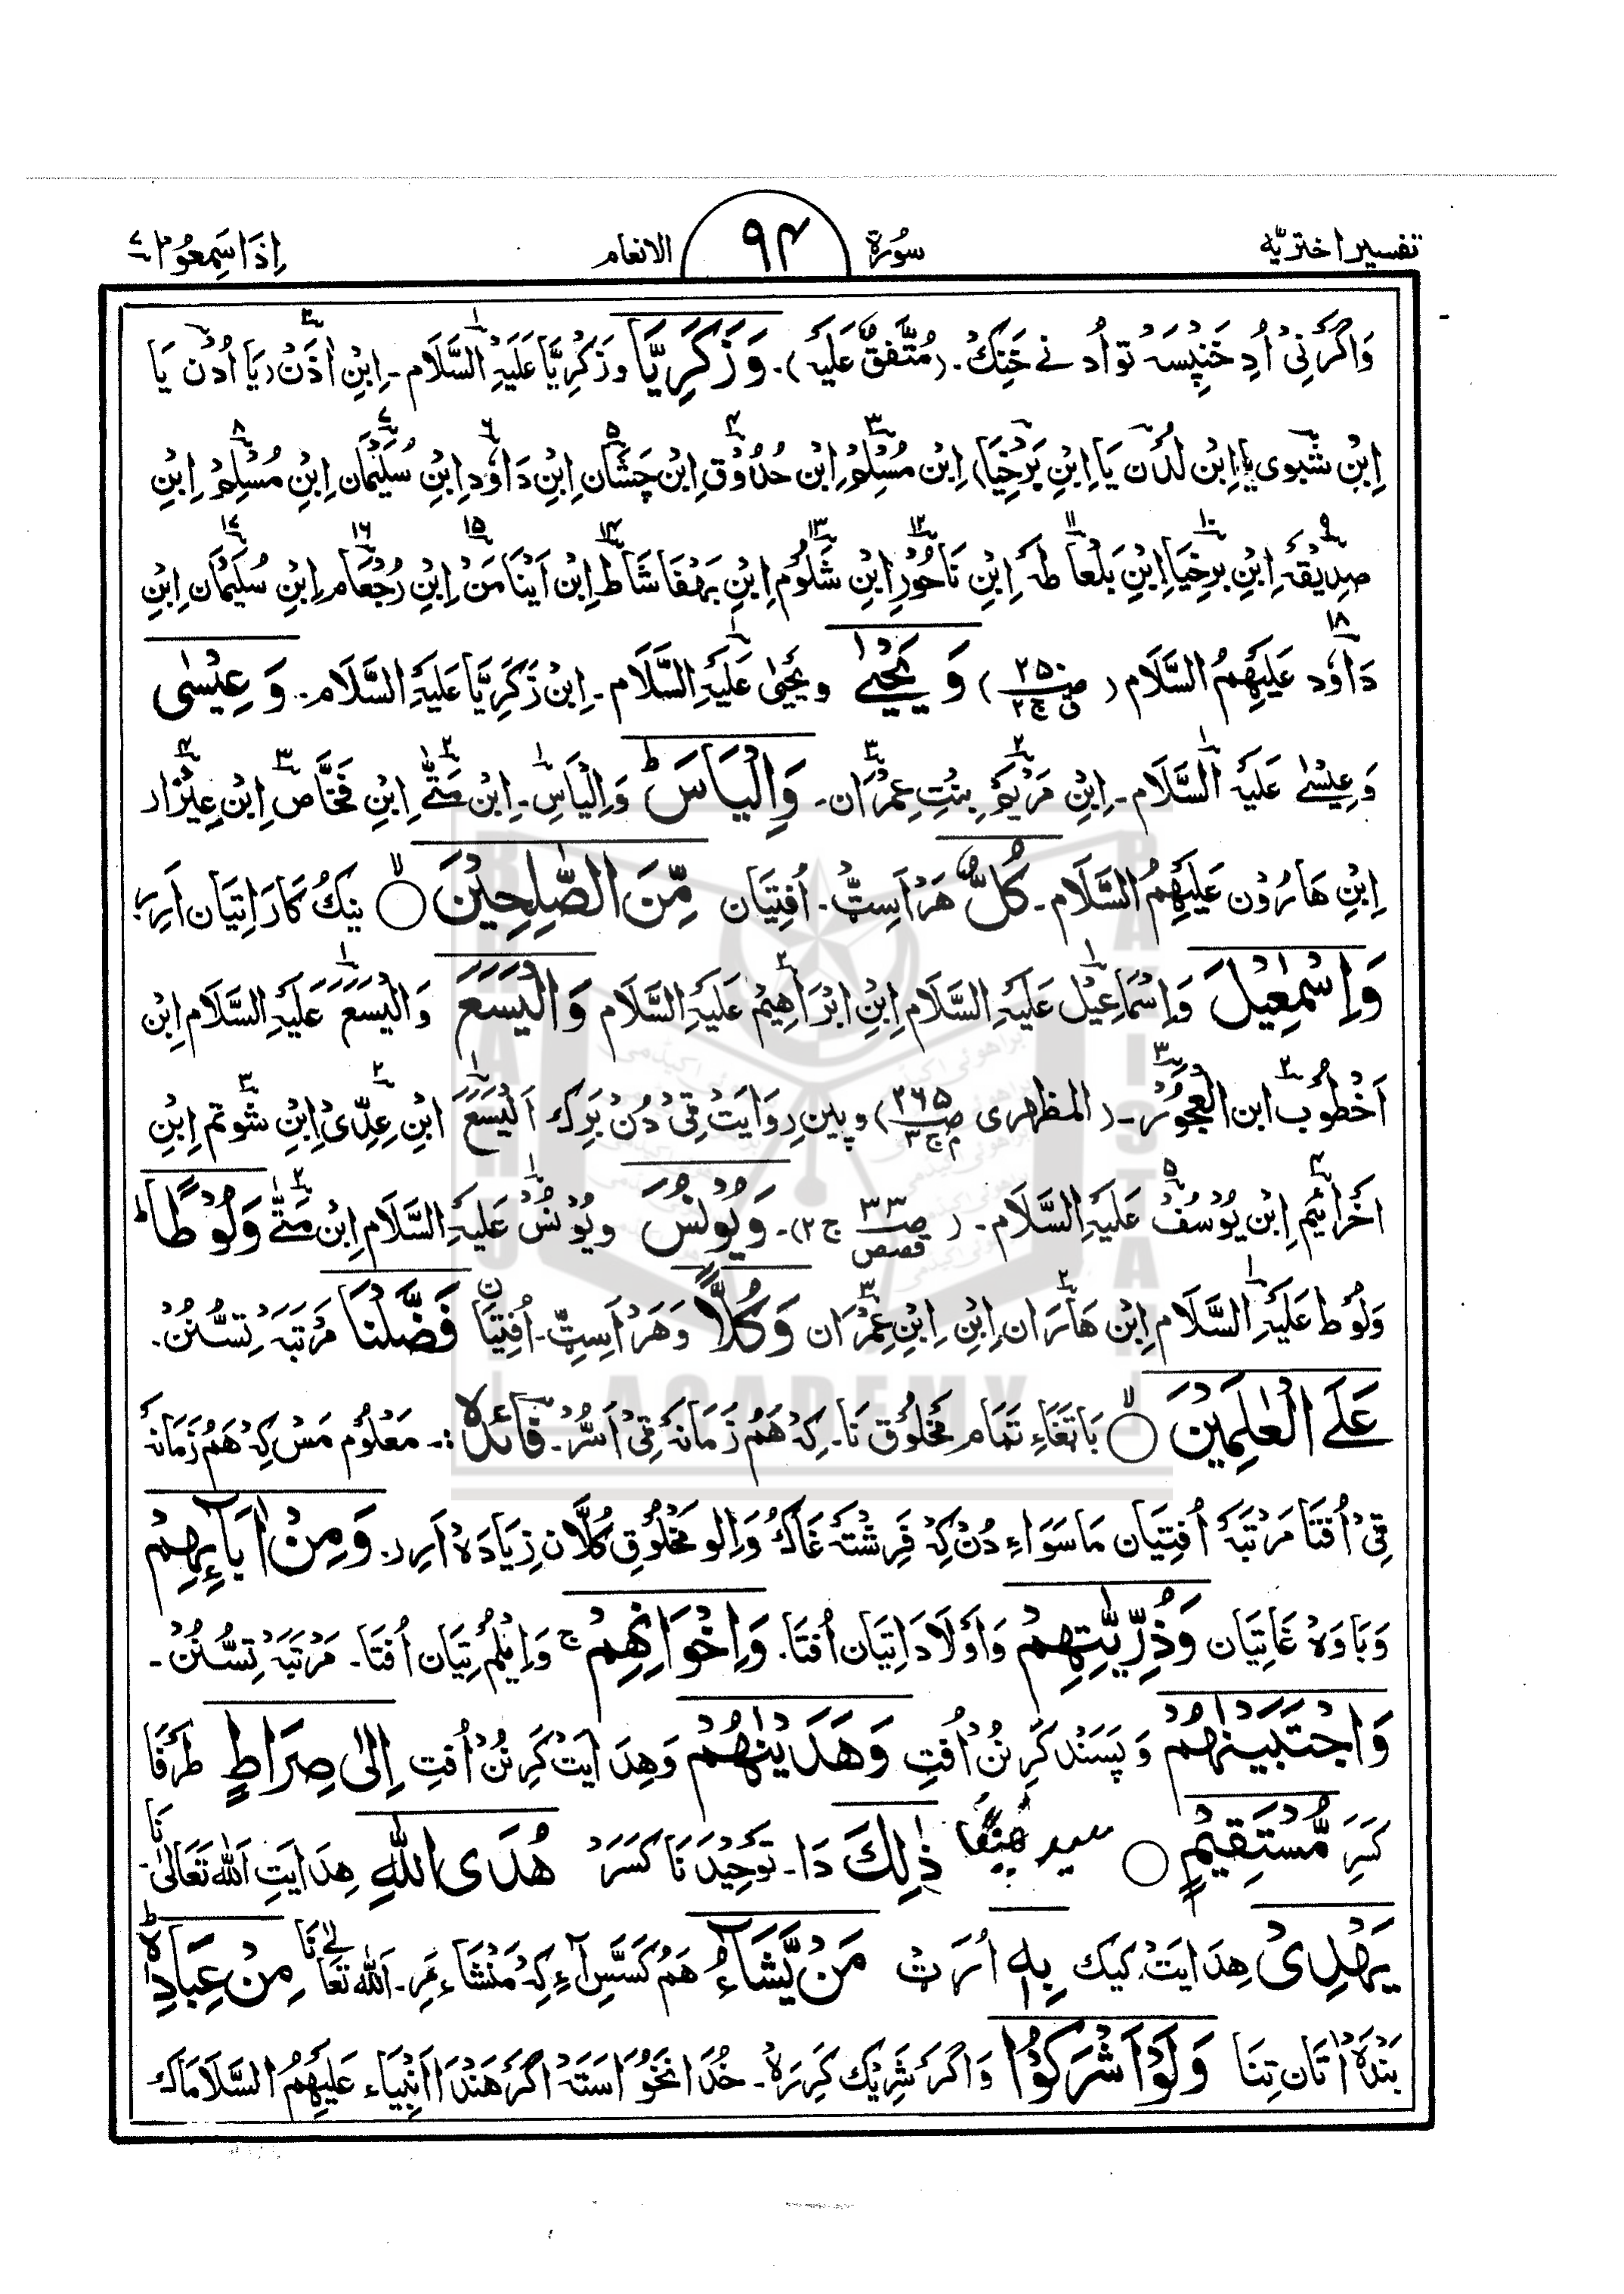 تفسیر اختریّه سُورۃ ۹۴ الانعام اِذَا سَمِعُوا ۷
وَاگرنیْ اُدِ خَنپیسَہ تو اُد نے خَنِک۔ (مُتَّفَقٌ عَلَیہ)۔ وَزَکَرِیَّا وزَکَرِیَّا عَلَیْہِ السَّلَام۔ اِبْنِ اٰذَنْ (یَا اُدُنْ یَا
اِبْنِ شَبوی یا اِبْن لَدُن یَا اِبْنِ بَرْخِیَا) اِبْن مُسْلِمُ اِبْن حُدُوْق اِبْن چَشَّان اِبْنِ دَاوٗد اِبْنِ سُلَیْمَان اِبْنِ مُسْلِمْ اِبْنِ
صِدِیْقَہْ اِبْنِ بَرخِیَا اِبْنِ بَلْعَاطَہ اِبْنِ نَاحُوْر اِبْنِ شَلُوْم اِبْنِ بَہْفَاشَاط اِبْن اَیْنَامَنْ اِبْنِ رُجْعَام اِبْنِ سُلَیْمَان اِبْنِ
دَاوٗد عَلَیْہِمُ السَّلَام (صـ ۲۵۰ ق ج ۲) وَیَحْیٰی ویَحْییٰ عَلَیْہِ السَّلَام۔ اِبْن زَکَرِیَّا عَلَیْہِ السَّلَام۔ وَعِیْسٰی
وَعِیْسٰے عَلَیْہِ السَّلَام۔ اِبْنِ مَرْیَمْ بِنْتِ عِمْرَان۔ وَاِلْیَاسَ ط وَاِلْیَاس۔ اِبْن مَتّٰے اِبْنِ فَخَّاص اِبْن عِیْزار
اِبْنِ ھَارُوْن عَلَیْہِمُ السَّلَام۔ کُلٌّ ھَرْ اَسِٹ۔ اُفْتِیَان مِّنَ الصّٰلِحِیْنَ نیک کَارَاتِیَان اَرِر
وَاِسْمٰعِیْلَ وَاِسْمَاعِیْل عَلَیْہِ السَّلَام اِبْنِ اِبْرَاھِیْم عَلَیْہِ السَّلَام وَالْیَسَعَ وَالْیَسَع عَلَیْہِ السَّلَام اِبْن
اَخْطُوْب ابن الْعَجُوْز۔ (المظهری صـ ۳۶۵ م ج ۳) و پین رِوَایَتْ ٹی دُنْ بَرَک اَلْیَسَعْ اِبْنِ عِدِّیْ اِبْنِ شُوتم اِبْنِ
اخْرَائِیْم اِبْن یُوْسُفْ عَلَیْہِ السَّلَام۔ (صـ ۳۳ قصص ج ۲)۔ وَیُوْنُسَ ویُوْنُسْ عَلَیْہِ السَّلَام اِبْن مَتّٰے وَلُوْطًا ط
وَلُوط عَلَیْہِ السَّلَام اِبْن ھَارَان اِبْنِ اِبْنِ عِمْرَان وَکُلًّا وَھَرْ اَسِٹ۔ اُفْتِیَان فَضَّلْنَا مَرْتَبَہ تِسُّنُنْ۔
عَلَی الْعٰلَمِیْنَ بَاتْغَاءِ تَمَام مَخْلُوْق نَا۔ کِہْ ھَمْ زَمَانَہ ٹی اَسُّرْ۔ فائدہ:۔ مَعْلُوْم مَسْ کِہْ ھَمْ زَمَانَہ
ٹی اُفْتَا مَرْتَبَہ اُفْتِیَان مَاسَوَاءِ دُنْ کِہْ فَرِشْتَہ غَاک وَاِلو مَخْلُوْق کُلَّان زِیَادَہ اَرِر۔ وَمِنْ اٰبَآئِہِمْ
وَبَاوَہ غَاتِیَان وَذُرِّیّٰتِہِمْ وَاَوْلَادَاتِیَان اُفْتَا۔ وَاِخْوَانِہِمْ ج وَاِیْلُم تِیَان اُفْتَا۔ مَرْتَبَہ تِسُّنُنْ۔
وَاجْتَبَیْنٰہُمْ وَپَسَنْد کَرِنُنْ اُفْتِ وَھَدَیْنٰہُمْ وَھِدَایَتْ کَرِنُنْ اُفْتِ اِلٰی صِرَاطٍ طَرَفَا
کَسَرِ مُّسْتَقِیْمٍ ذٰلِکَ دَا۔ تَوْحِیْد نَا کَسَرْ ھُدَی اللّٰہِ ھِدَایَتِ اَللّٰہ تَعَالٰی نَا۔
یَہْدِیْ ھِدَایَتْ کیک بِہٖ اُرَٹ مَنْ یَّشَآءُ ھَمْ کَسَّسِ آءِ کِہ مَنْشَاء مَرِ۔ اَللّٰہ تَعَالٰے نَا مِنْ عِبَادِہٖ ط
بَنْدَہْ اتَان تِنَا وَلَوْ اَشْرَکُوْا وَاگَر شَرِیْک کَرِرَہْ۔ خُدَانَخَوْاسَتَہْ اَگَر ھَنْدَا اَنْبِیَاء عَلَیْہِمُ السَّلَامَاک
BRAHUI ACADEMY PAKISTAN